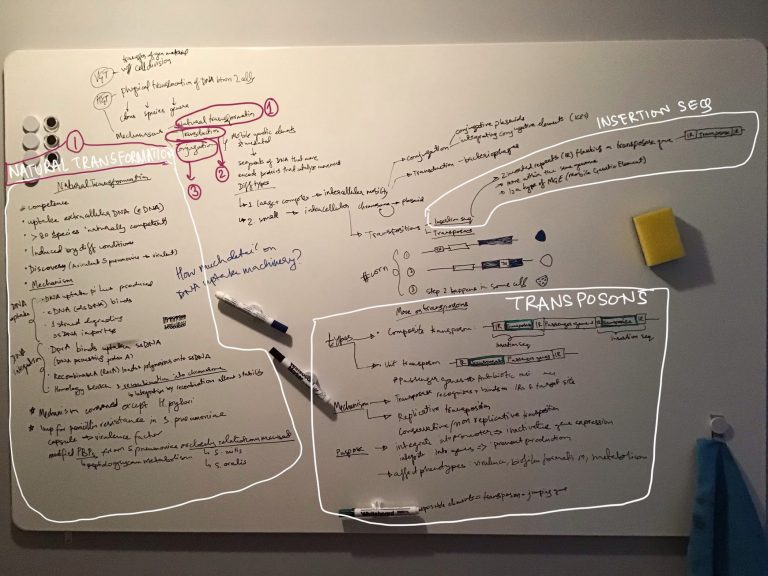 VGT
transfer of gen material
w/ cell division
HGT → physical translocation of DNA btwn 2 cells
clone species genera
Mechanisms
Natural transformation
Transduction
Conjugation
mobile genetic elements
segments of DNA that move
encode proteins that catalyse movement
Diff types
↳ 1. larger complex → intercellular mobility
↳ 2. small → intracellular
chromosome → plasmid
Conjugation
conjugative plasmids
integrating conjugative elements (ICEs)
Transduction - bacteriophages
→ Transpositions
Insertion seq
Transposons
1
2
3
INSERTION SEQS
2 inverted repeats (IR) flanking a transposase gene
IR Transposase IR
move within the same genome
is a type of MGE (Mobile Genetic Element)
# corn
1
2
3 step 2 happens in some cells
1
NATURAL TRANSFORMATION
Natural Transformation
* competence
• uptake extracellular DNA (eDNA)
• > 80 species 'naturally competent'
• Induced by diff conditions
• Discovery (avirulent S pneumoniae → virulent)
• Mechanism
DNA uptake
- DNA uptake pilus produced
- eDNA (dsDNA) binds
- 1 strand degraded
- ssDNA imported
DNA integration
- DprA binds uptaken ssDNA
(DNA processing protein A)
- Recombinase (RecA) loaded polymerises onto ssDNA
- Homology search & recombination into chromosome
↳ integration by recombination allows stability
* Mechanism conserved except H. pylori
* imp for penicillin resistance in S pneumoniae
capsule → virulence factor
modified PBPs from S pneumoniae or closely related commensal
↳ peptidoglycan metabolism
↳ S. mitis
↳ S. oralis
How much detail on
DNA uptake machinery?
TRANSPOSONS
More on transposons
Types
• Composite transposon
IR Transposase IR Passenger genes IR Transposase IR
insertion seq
insertion seq
• Unit transposon
IR Transposase Passenger genes IR
# Passenger genes → Antibiotic
Mechanism
- Transposase recognises & binds to IRs & target site
- Replicative transposition
Conservative / non replicative transposition
Purpose
• integrate into promoter → inactivate gene expression
integrate into genes → prevent production
→ affect phenotypes virulence, biofilm formation, metabolism
transposon = jumping gene
Whiteboard